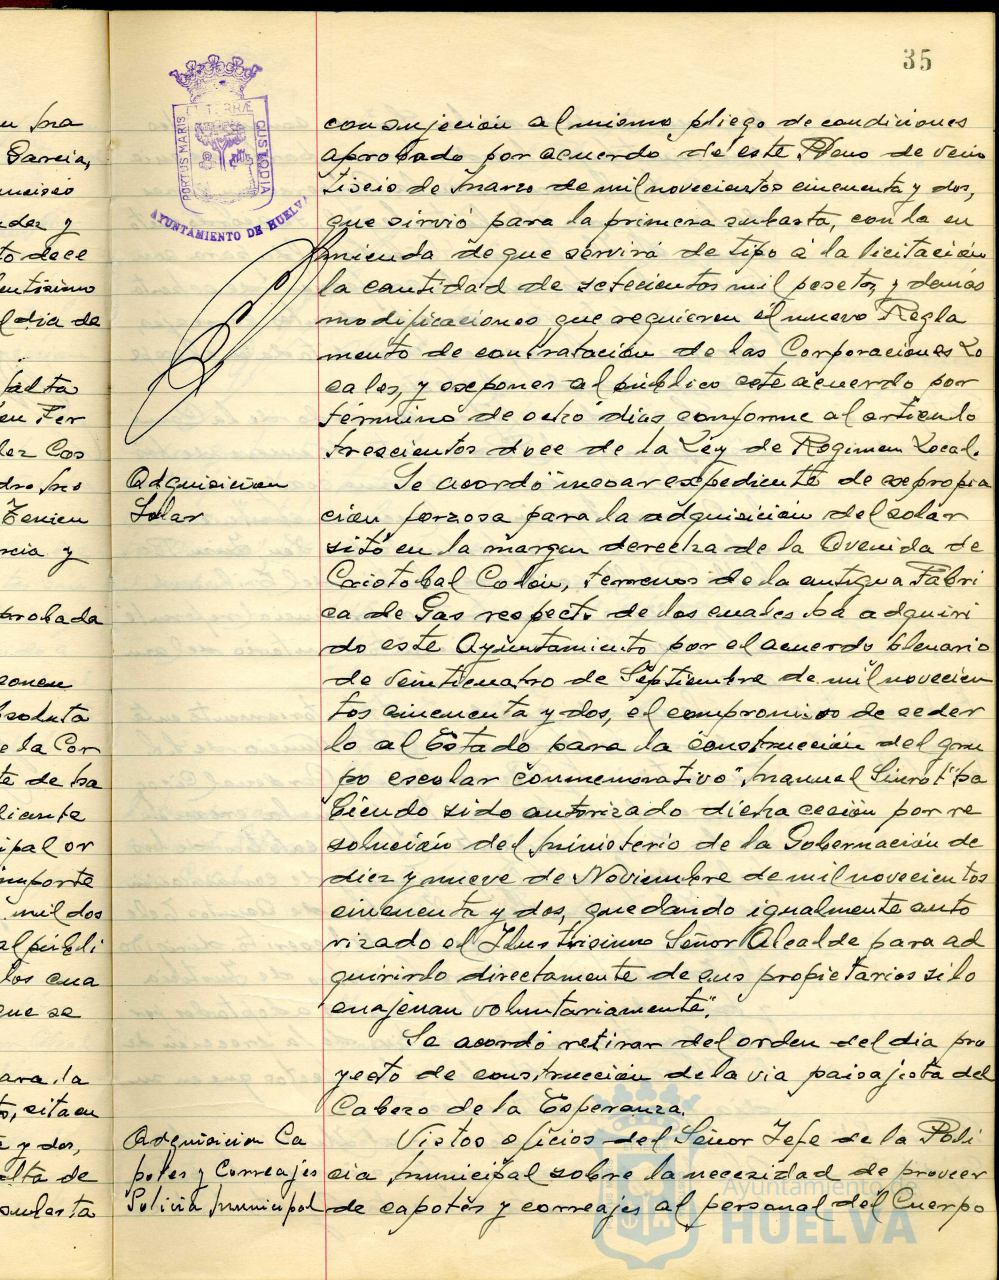 35
PORTUS MARIS ET TERRÆ CUSTODIA
AYUNTAMIENTO DE HUELVA
con sujeción al mismo pliego de condiciones
aprobado por acuerdo de este Pleno de vein
tiseis de Marzo de mil novecientos cincuenta y dos,
que sirvió para la primera subasta, con la en
mienda de que servirá de tipo á la licitación
la cantidad de setecientos mil pesetas, y demás
modificaciones que requieren el nuevo Regla
mento de contratación de las Corporaciones Lo
cales, y exponer al público este acuerdo por
término de ocho dias conforme al artículo
trescientos doce de la Ley de Régimen Local.
Adquisición
Solar
Se acordó "incoar expediente de expropia
ción forzosa para la adquisición del solar
sito en la márgen derecha de la Avenida de
Cristobal Colón, terrenos de la antigua Fábri
ca de Gas respecto de los cuales ha adquiri
do este Ayuntamiento por el acuerdo plenario
de veinticuatro de Septiembre de mil novecien
tos cincuenta y dos, el compromiso de ceder
lo al Estado para la construcción del gru
po escolar conmemorativo "Manuel Siurot" ha
biendo sido autorizado dicha cesión por re
solución del Ministerio de la Gobernación de
diez y nueve de Noviembre de mil novecientos
cincuenta y dos, quedando igualmente auto
rizado el Ilustrisimo Señor Alcalde para ad
quirirlo directamente de sus propietarios si lo
enajenan voluntariamente".
Se acordó retirar del orden del dia pro
yecto de construcción de la via paisajista del
Cabezo de la Esperanza.
Adquisicion Ca
potes y Correajes
Policia Municipal
Vistos oficios del Señor Jefe de la Poli
cia Municipal sobre la necesidad de proveer
de capotes y correajes al personal del Cuerpo
Ayuntamiento de
HUELVA
n Fra
Garcia,
ncisco
ndez y
to doce
entisimo
l dia de
falta
en Fer
lez Cos
dro Fco
Tenien
rcia y
probada
ponen
bsoluta
e la Cor
te de ha
diente
ipal or
importe
mil dos
al públi
los cua
que se
ara la
to, sita en
a y dos,
lta de
subasta